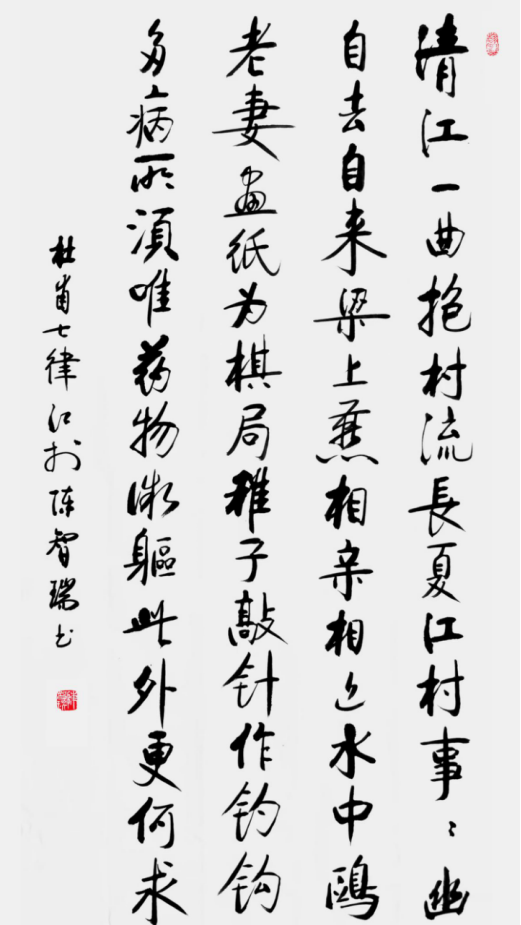 清江一曲抱村流長夏江村事〻幽
自去自来梁上燕相亲相近水中鷗
老妻画纸为棋局稚子敲针作钓钩
多病所須唯药物微軀此外更何求
杜甫七律江村陈智瑞书